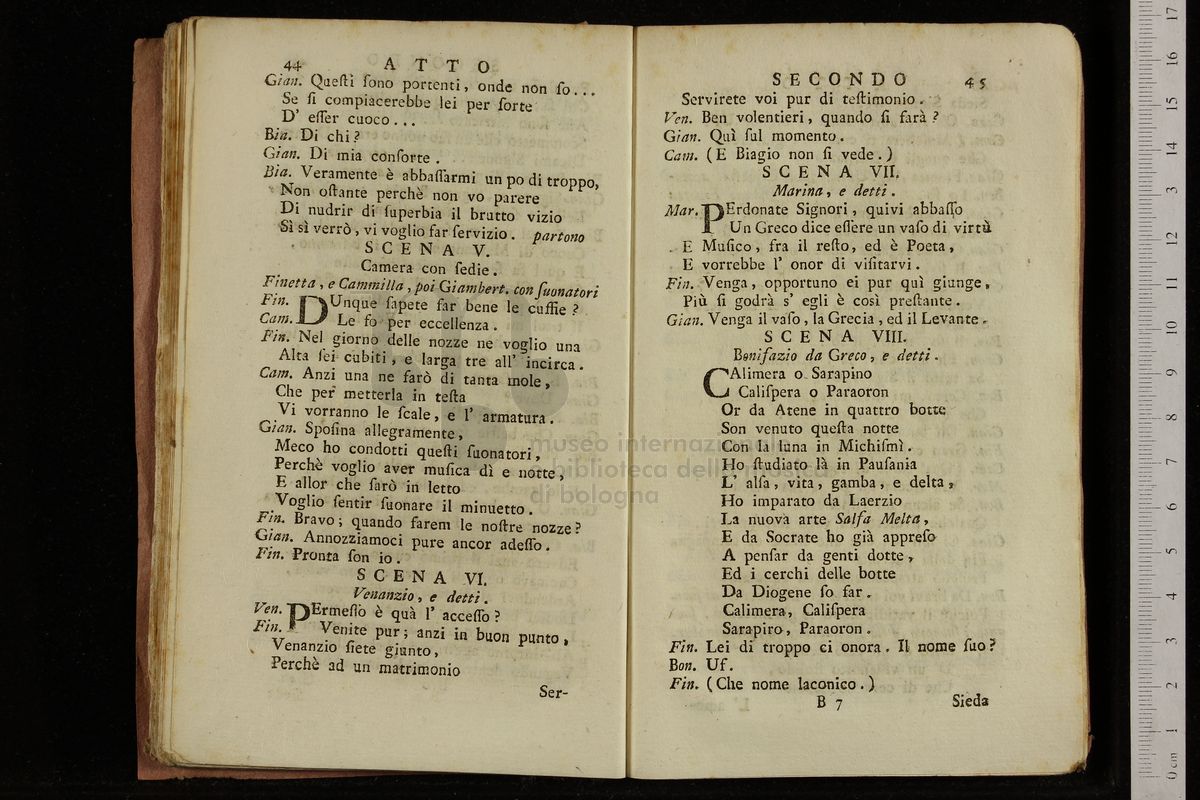 44 A T T O
Gian. Queſti ſono portenti, onde non ſo...
Se ſi compiacerebbe lei per ſorte
D' eſſer cuoco...
Bia. Di chi?
Gian. Di mia conſorte.
Bia. Veramente è abbaſſarmi un po di troppo,
Non oſtante perchè non vo parere
Di nudrir di ſuperbia il brutto vizio
Sì sì verrò, vi voglio far ſervizio. partono
S C E N A V.
Camera con ſedie.
Finetta, e Cammilla, poi Giambert. con ſuonatori
Fin. DUnque ſapete far bene le cuffie?
Cam. Le fo per eccellenza.
Fin. Nel giorno delle nozze ne voglio una
Alta ſei cubiti, e larga tre all' incirca.
Cam. Anzi una ne farò di tanta mole,
Che per metterla in teſta
Vi vorranno le ſcale, e l' armatura.
Gian. Spoſina allegramente,
Meco ho condotti queſti ſuonatori,
Perchè voglio aver muſica dì e notte,
E allor che ſarò in letto
Voglio ſentir ſuonare il minuetto.
Fin. Bravo; quando farem le noſtre nozze?
Gian. Annozziamoci pure ancor adeſſo.
Fin. Pronta ſon io.
S C E N A VI.
Venanzio, e detti.
Ven. PErmeſſo è quà l' acceſſo?
Fin. Venite pur; anzi in buon punto,
Venanzio ſiete giunto,
Perchè ad un matrimonio
Ser-
S E C O N D O 45
Servirete voi pur di teſtimonio.
Ven. Ben volentieri, quando ſi farà?
Gian. Quì ſul momento.
Cam. (E Biagio non ſi vede.)
S C E N A VII.
Marina, e detti.
Mar. PErdonate Signori, quivi abbaſſo
Un Greco dice eſſere un vaſo di virtù
E Muſico, fra il reſto, ed è Poeta,
E vorrebbe l' onor di viſitarvi.
Fin. Venga, opportuno ei pur quì giunge,
Più ſi godrà s' egli è così preſtante.
Gian. Venga il vaſo, la Grecia, ed il Levante.
S C E N A VIII.
Bonifazio da Greco, e detti.
CAlimera o Sarapino
Caliſpera o Paraoron
Or da Atene in quattro botte
Son venuto queſta notte
Con la luna in Michiſmì.
Ho ſtudiato là in Pauſania
L' alfa, vita, gamba, e delta,
Ho imparato da Laerzio
La nuova arte Salfa Melta,
E da Socrate ho già appreſo
A penſar da genti dotte,
Ed i cerchi delle botte
Da Diogene ſo far.
Calimera, Caliſpera
Sarapiro, Paraoron.
Fin. Lei di troppo ci onora. Il nome ſuo?
Bon. Uf.
Fin. (Che nome laconico.)
B 7 Sieda
museo internazionale
biblioteca della musica
di bologna
0 cm 1 2 3 4 5 6 7 8 9 10 11 12 13 14 15 16 17